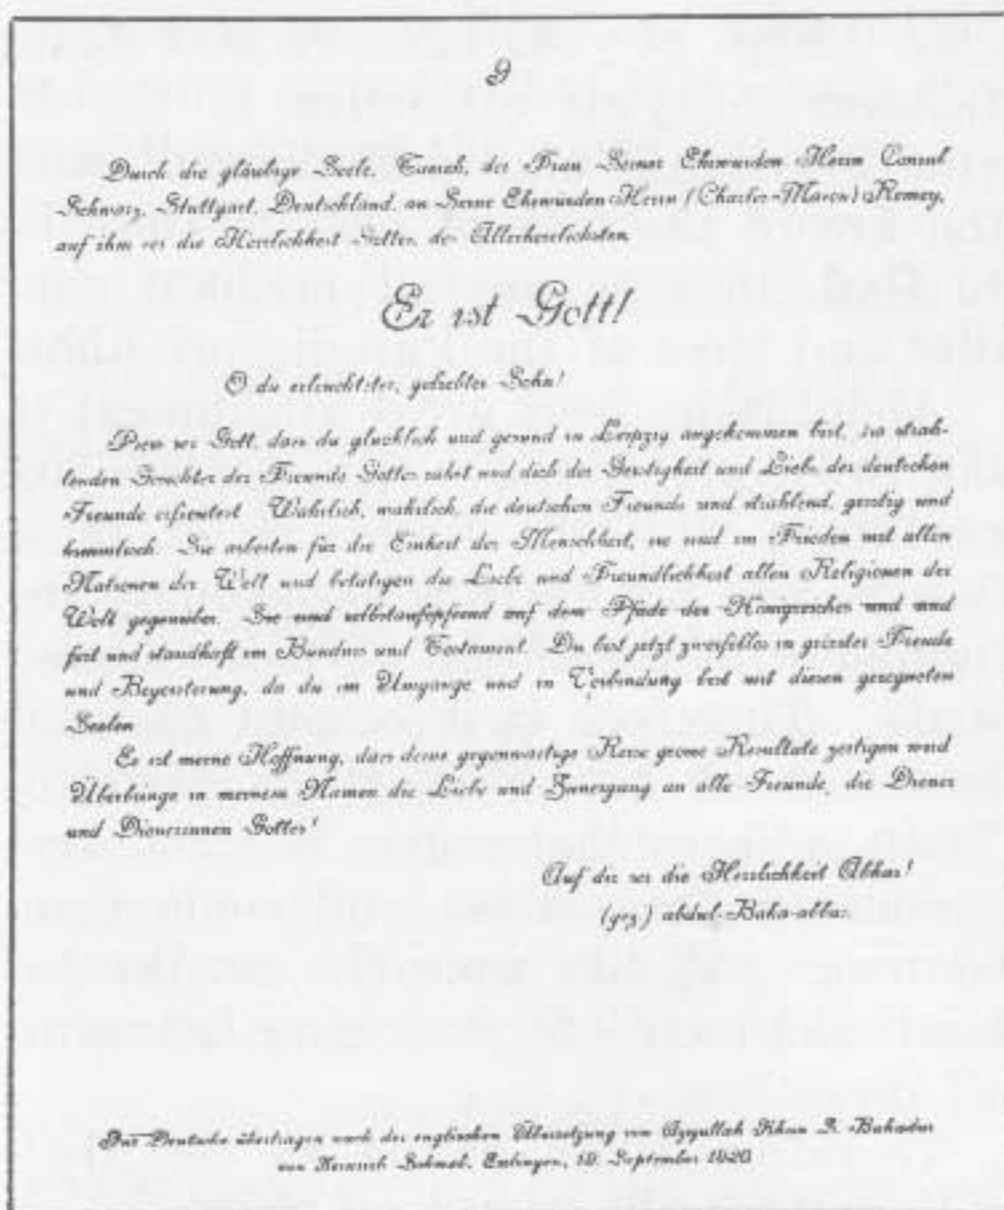 9
Durch die gläubige Seele, Tameh, der Frau Seiner Ehrwürden Herrn Consul
Schwarz, Stuttgart, Deutschland, an Seine Ehrwürden Herrn (Charles-Mason) Remey,
auf ihm sei die Herrlichkeit Gottes, des Allerherrlichsten
Er ist Gott!
O du erleuchteter, geliebter Sohn!
Preis sei Gott, dass du glücklich und gesund in Leipzig angekommen bist, die strah-
lenden Gesichter der Freunde Gottes sahst und dich der Geistigkeit und Liebe der deutschen
Freunde erfreutest. Wahrlich, wahrlich, die deutschen Freunde sind strahlend, geistig und
himmlisch. Sie arbeiten für die Einheit der Menschheit, sie sind im Frieden mit allen
Nationen der Welt und betätigen die Liebe und Freundlichkeit allen Religionen der
Welt gegenüber. Sie sind selbstaufopfernd auf dem Pfade des Königreiches und sind
fest und standhaft im Bündnis und Testament. Du bist jetzt zweifellos in grösster Freude
und Begeisterung, da du im Umgange und in Verbindung bist mit diesen gesegneten
Seelen
Es ist meine Hoffnung, dass deine gegenwärtige Reise grosse Resultate zeitigen wird
Überbringe in meinem Namen die Liebe und Zuneigung an alle Freunde, die Diener
und Dienerinnen Gottes!
Auf dir sei die Herrlichkeit Abhas!
(gez.) abdul-Baha-abbas.
Ins Deutsche übertragen nach der englischen Übersetzung von Azizullah Khan S. Bahadur
von Heinrich Schwab, Esslingen, 18. September 1920